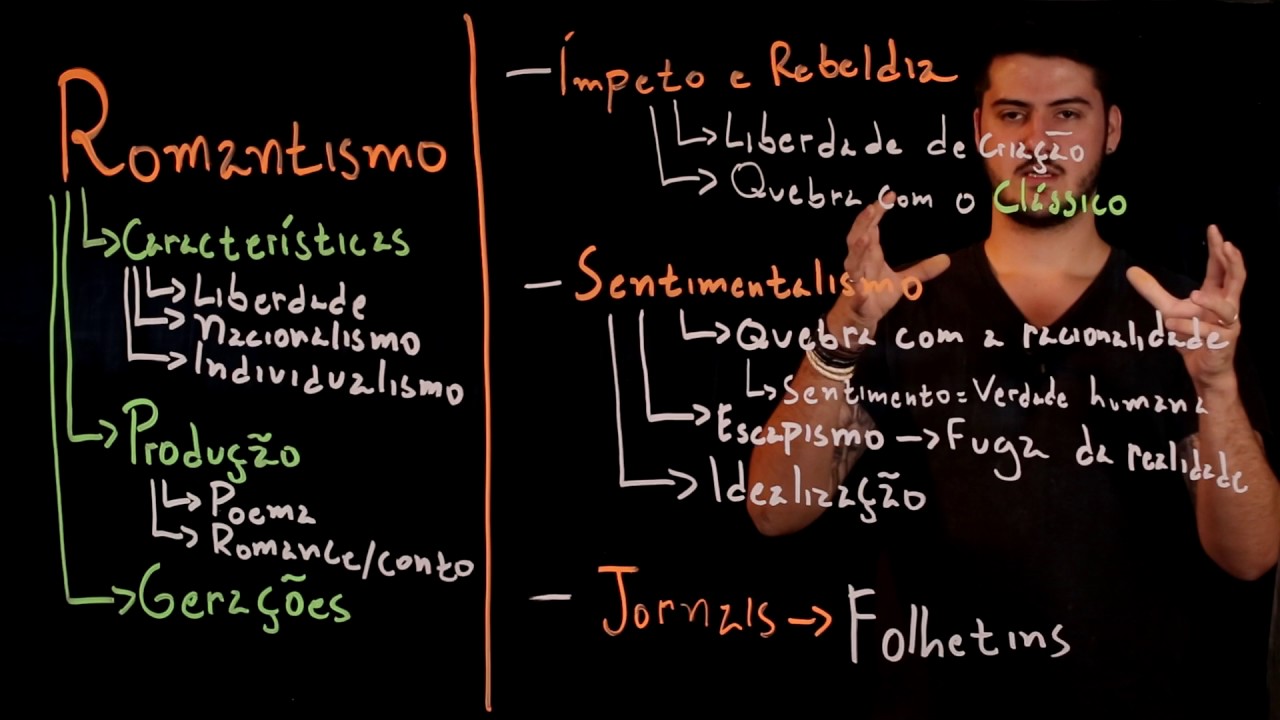 Romantismo
Características
Liberdade
Nacionalismo
Individualismo
Produção
Poema
Romance/conto
Gerações
- Ímpeto e Rebeldia
Liberdade de Criação
Quebra com o Clássico
- Sentimentalismo
Quebra com a racionalidade
Sentimento = Verdade humana
Escapismo → Fuga da realidade
Idealização
- Jornais → Folhetins